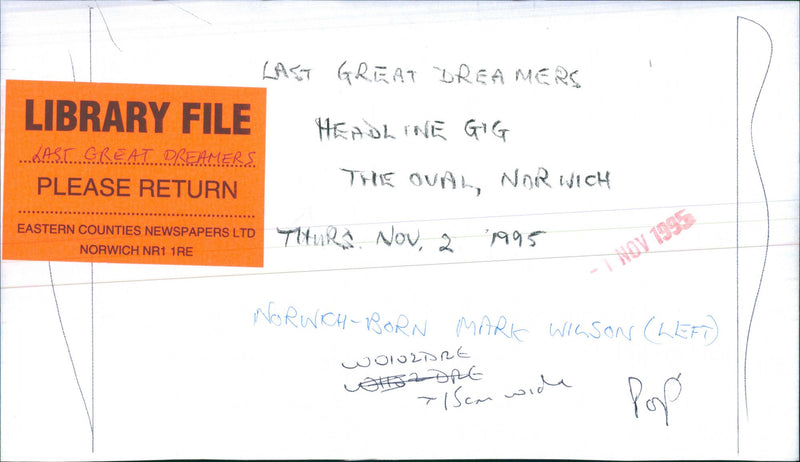 LIBRARY FILE
LAST GREAT DREAMERS
PLEASE RETURN
EASTERN COUNTIES NEWSPAPERS LTD
NORWICH NR1 1RE
LAST GREAT DREAMERS
HEADLINE GIG
THE OVAL, NORWICH
THURS. NOV. 2 1995
- 1 NOV 1995
NORWICH-BORN MARK WILSON (LEFT)
W0102DRE
T/5cm wide
Pop